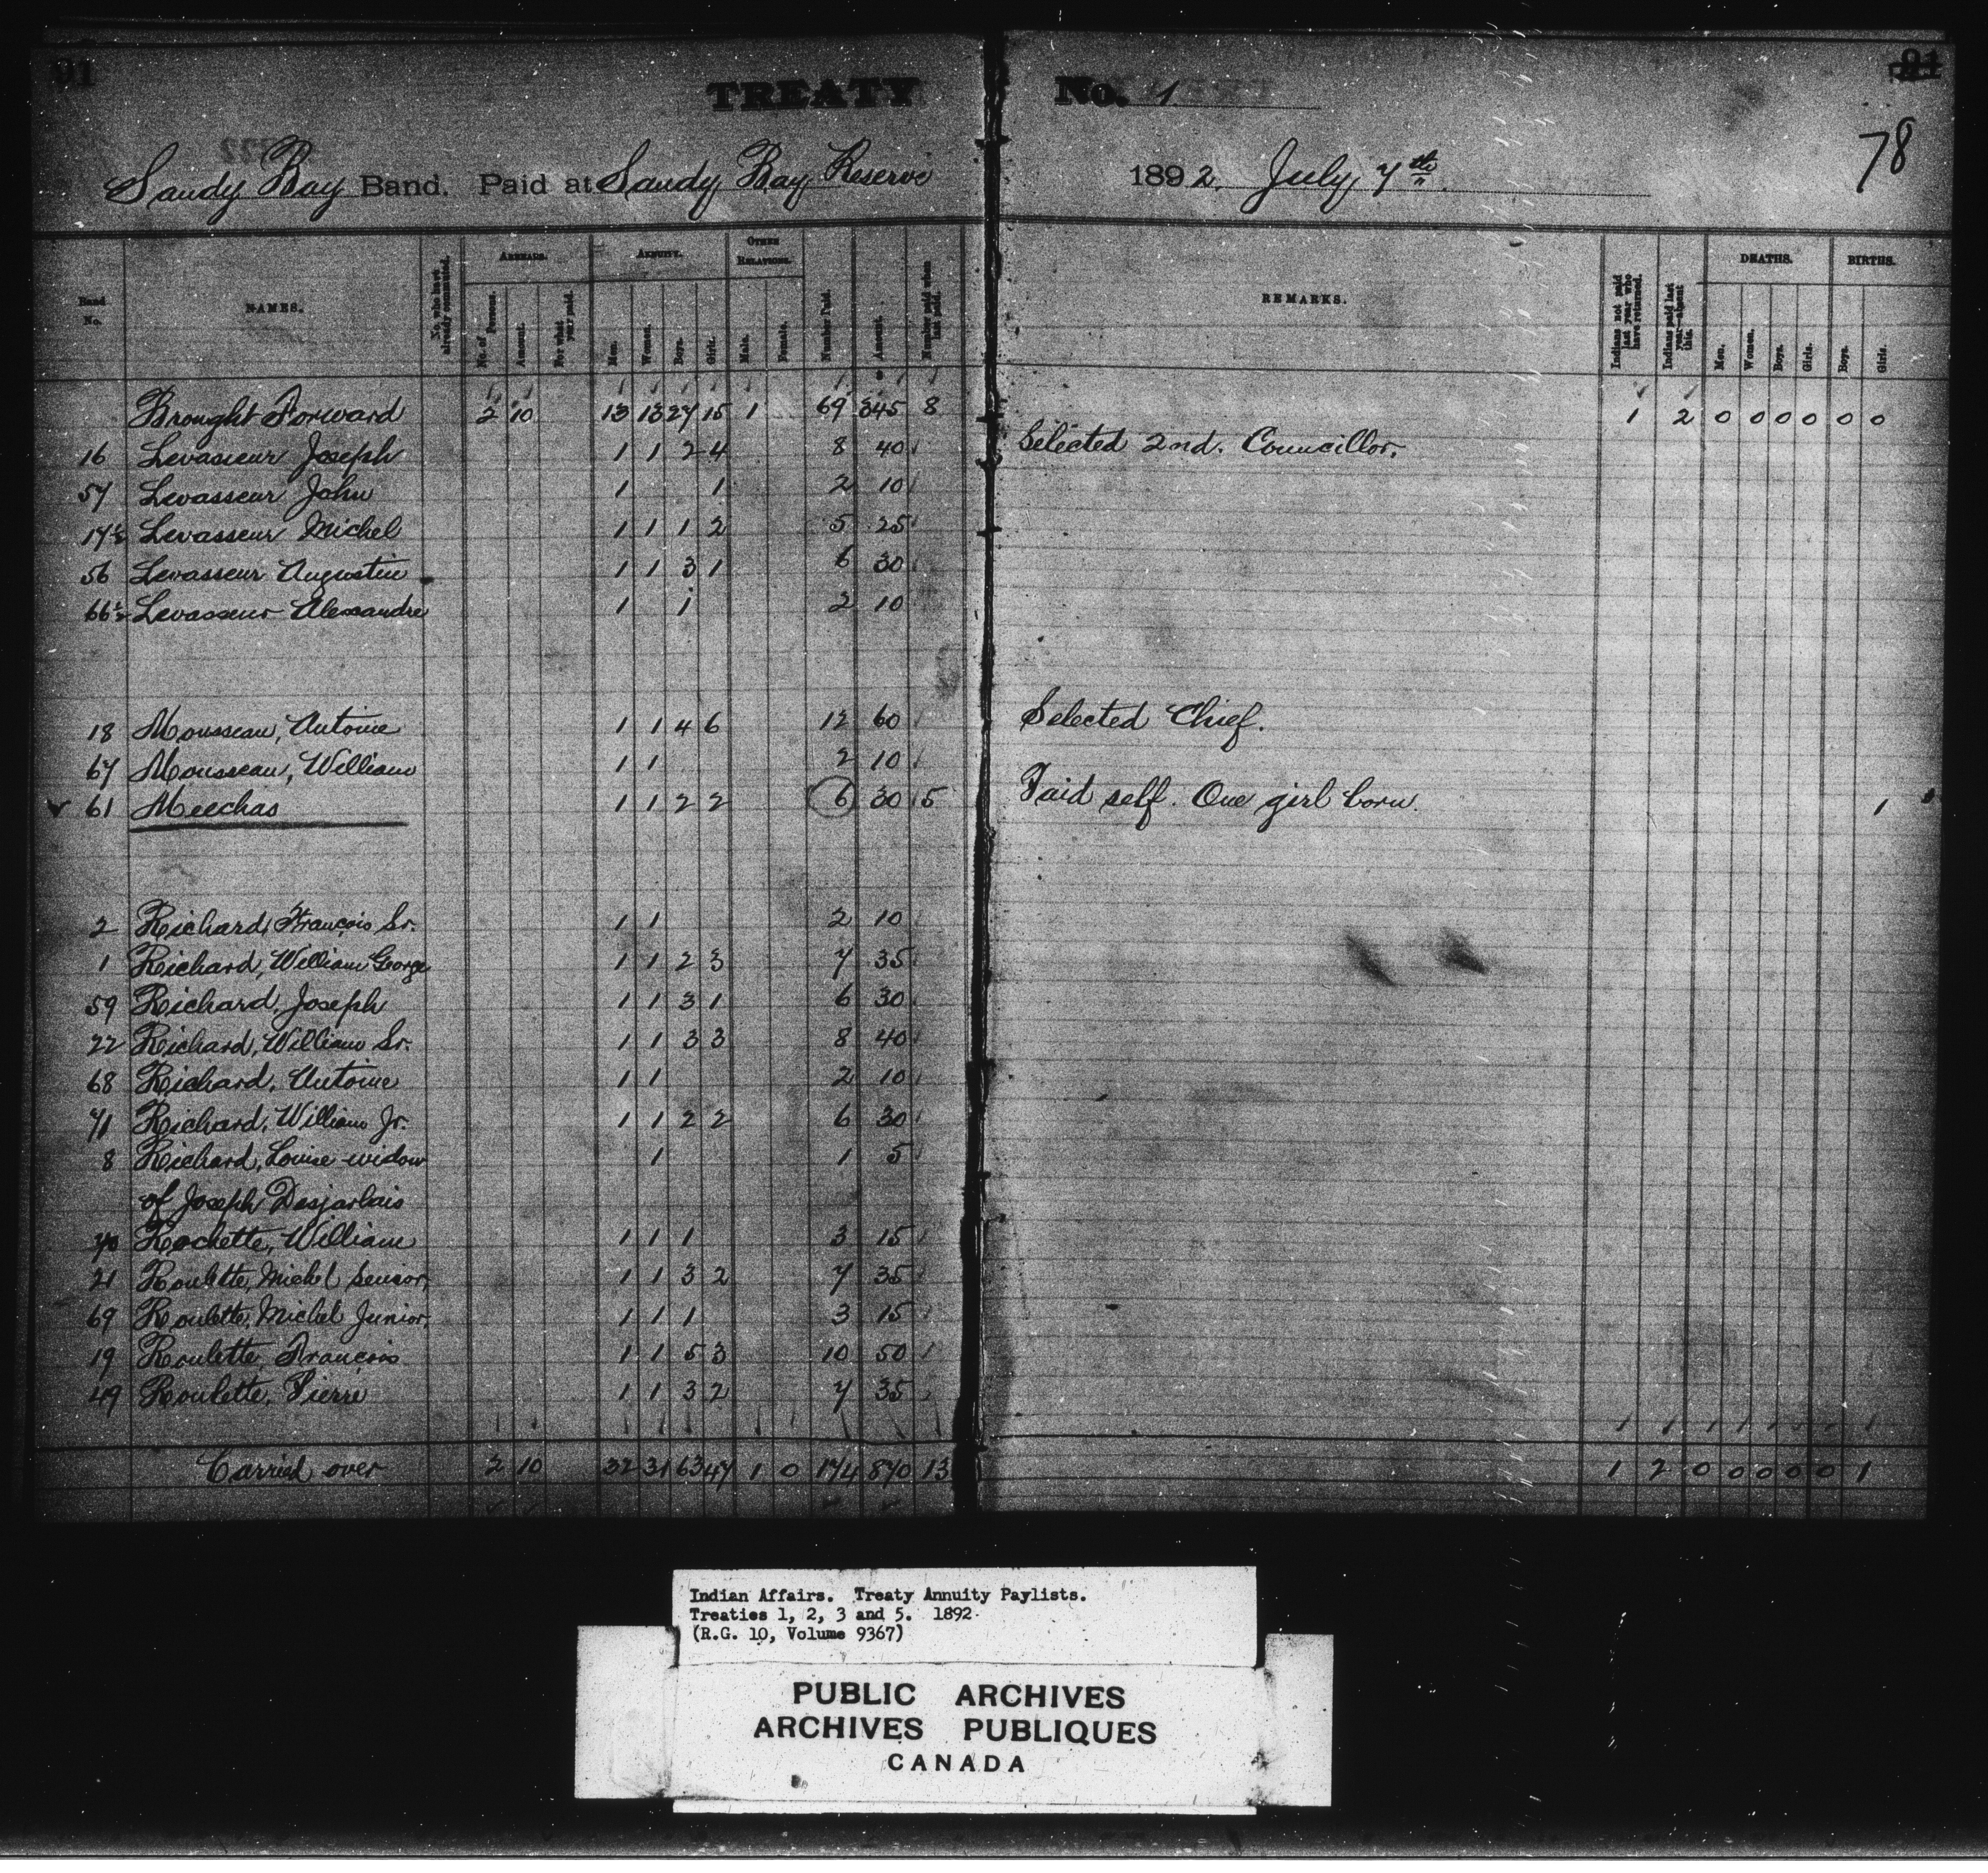 91
91
TREATY No. 1
78
Sandy Bay Band. Paid at Sandy Bay Reserve 1892 July 7th
Band No.
NAMES.
No. who have already commuted.
ARREARS.
No. of Persons.
Amount.
For what year paid.
ANNUITY.
Men.
Women.
Boys.
Girls.
OTHER RELATIONS.
Male.
Female.
Number Paid.
Amount.
Number paid when last paid.
REMARKS.
Indians not paid last year who have returned.
Indians paid last year—absent this.
DEATHS.
Men.
Women.
Boys.
Girls.
BIRTHS.
Boys.
Girls.
Brought Forward 2 10 13 13 27 15 1 69 345 8 1 2 0 0 0 0 0 0
16 Levasseur Joseph 1 1 2 4 8 40 Selected 2nd. Councillor.
57 Levasseur John 1 1 2 10
17½ Levasseur Michel 1 1 1 2 5 25
56 Levasseur Augustin 1 1 3 1 6 30
66½ Levasseur Alexandre 1 1 2 10
18 Mousseau, Antoine 1 1 4 6 12 60 Selected Chief.
67 Mousseau, William 1 1 2 10
61 Meechas 1 1 2 2 6 30 5 Paid self. One girl born. 1
2 Richard, François Sr. 1 1 2 10
1 Richard, William George 1 1 2 3 7 35
59 Richard, Joseph 1 1 3 1 6 30
22 Richard, William Sr. 1 1 3 3 8 40
68 Richard, Antoine 1 1 2 10
71 Richard, William Jr. 1 1 2 2 6 30
8 Richard, Louise widow 1 1 5
of Joseph Desjarlais
70 Rochette, William 1 1 1 3 15
21 Roulette, Michel Senior, 1 1 3 2 7 35
69 Roulette, Michel Junior, 1 1 1 3 15
19 Roulette, Francois 1 1 5 3 10 50
49 Roulette, Pierre 1 1 3 2 7 35
Carried over 2 10 32 31 63 47 1 0 174 870 13 1 2 0 0 0 0 0 1
Indian Affairs. Treaty Annuity Paylists.
Treaties 1, 2, 3 and 5. 1892.
(R.G. 10, Volume 9367)
PUBLIC ARCHIVES
ARCHIVES PUBLIQUES
CANADA